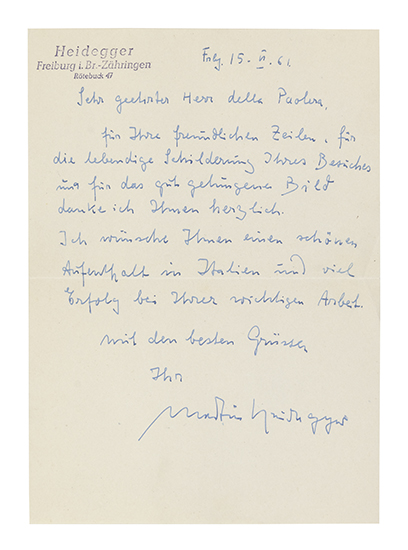 Heidegger
Freiburg i. Br.-Zähringen
Rötebuck 47
Frbg. 15. VI. 61
Sehr geehrter Herr della Paolera,
für Ihre freundlichen Zeilen, für
die lebendige Schilderung Ihres Besuches
und für das gut gelungene Bild
danke ich Ihnen herzlich.
Ich wünsche Ihnen einen schönen
Aufenthalt in Italien und viel
Erfolg bei Ihrer wichtigen Arbeit.
mit den besten Grüssen
Ihr
Martin Heidegger